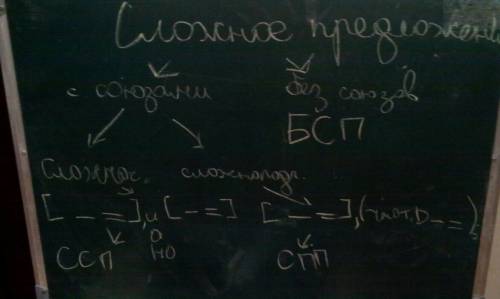 Сложное предложени
с союзами без союзов
БСП
Сложное. сложнопод.
[ — = ], и [ — = ] [ — = ], ( — = ).
а
но
ССП СПП